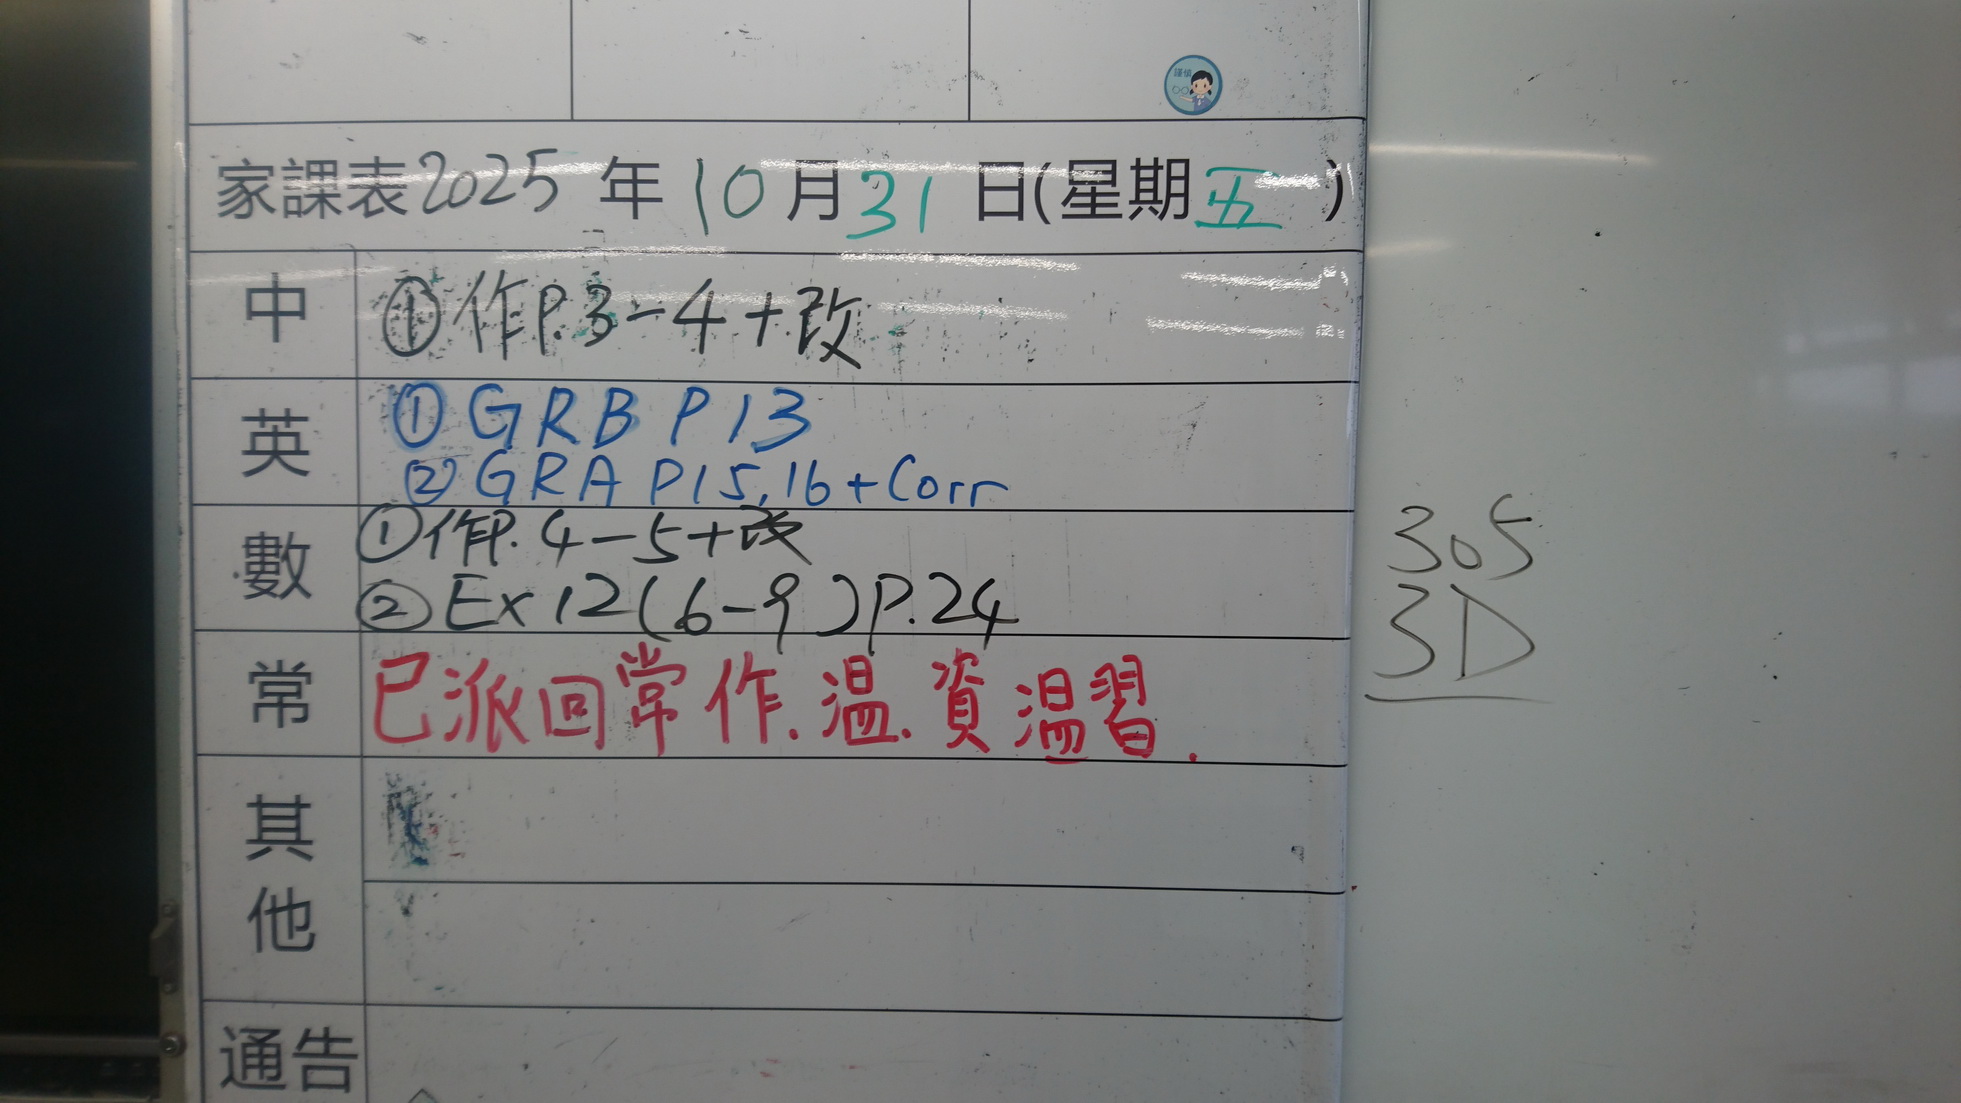 謹慎
家課表2025年10月31日(星期五)
中 ①作P.3-4+改
英 ①GRB P13
②GRA P15,16+Corr
數 ①作P.4-5+改
②Ex12(6-9)P.24
常 已派回常作.溫.資溫習.
其他
通告
305
3D